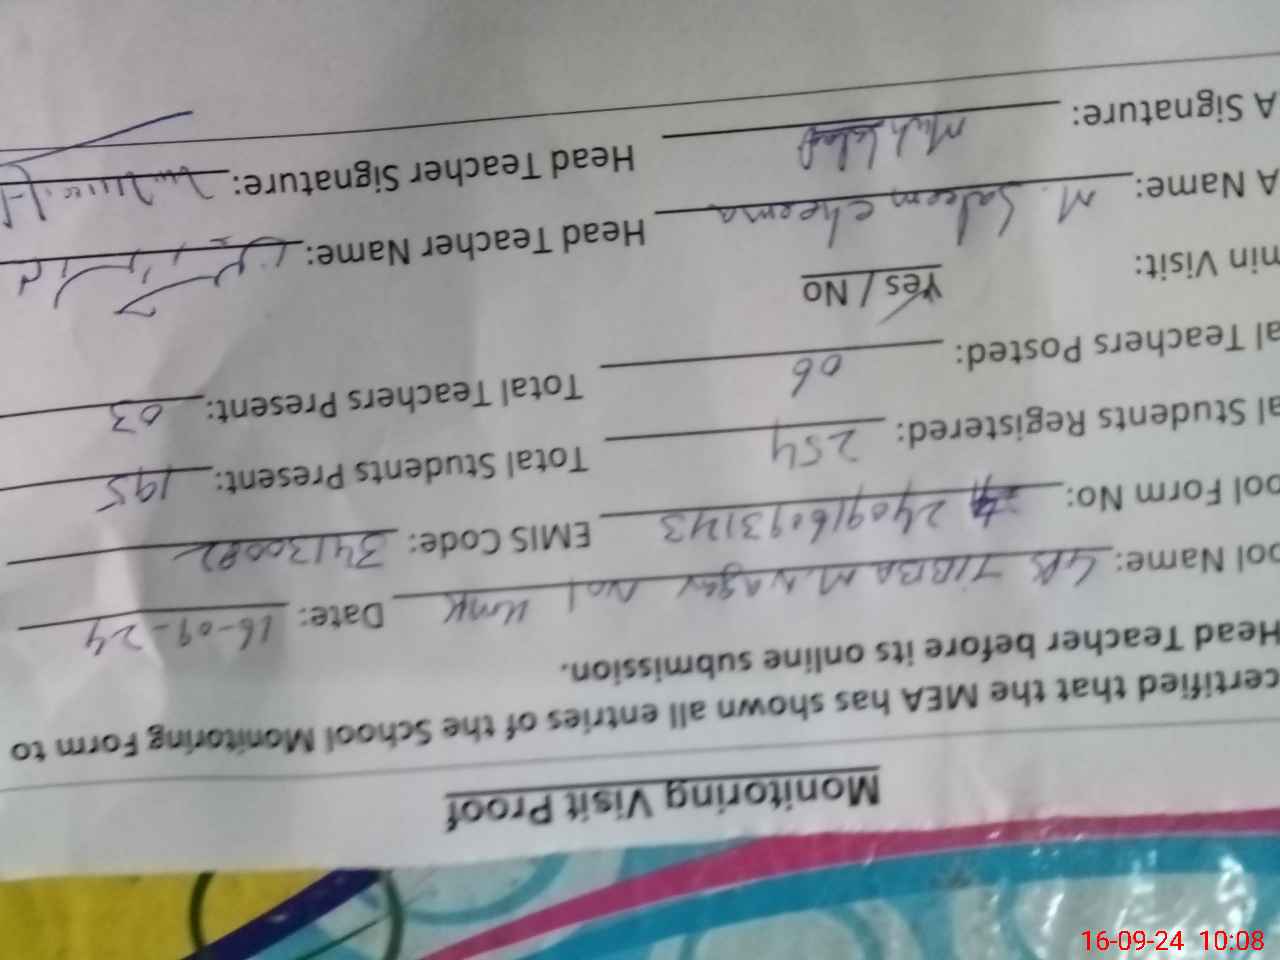 Monitoring Visit Proof
certified that the MEA has shown all entries of the School Monitoring Form to
Head Teacher before its online submission.
ool Name: GPS TIBBA M. Nagar No 1 Date: 16-09-24
ool Form No: 240916093143 EMIS Code: 34130082
al Students Registered: 254 Total Students Present: 195
al Teachers Posted: 06 Total Teachers Present: 03
nin Visit: Yes / No
A Name: M. Saleem Cheema Head Teacher Name:
A Signature: Head Teacher Signature:
16-09-24 10:08